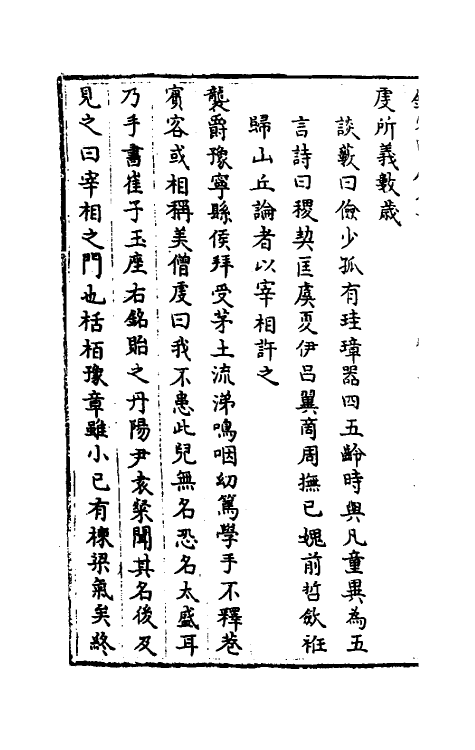 虔所義數歲
談藪曰儉少孤有珪璋器四五齡時與凡童異為五
言詩曰稷契匡虞夏伊呂翼商周撫已媿前哲斂袵
歸山丘論者以宰相許之
襲爵豫寧縣侯拜受茅土流涕嗚咽幼篤學手不釋卷
賓客或相稱美僧虔曰我不患此兒無名恐名太盛耳
乃手書崔子玉座右銘貽之丹陽尹袁粲聞其名後及
見之曰宰相之門也栝栢豫章雖小已有棟梁氣矣終